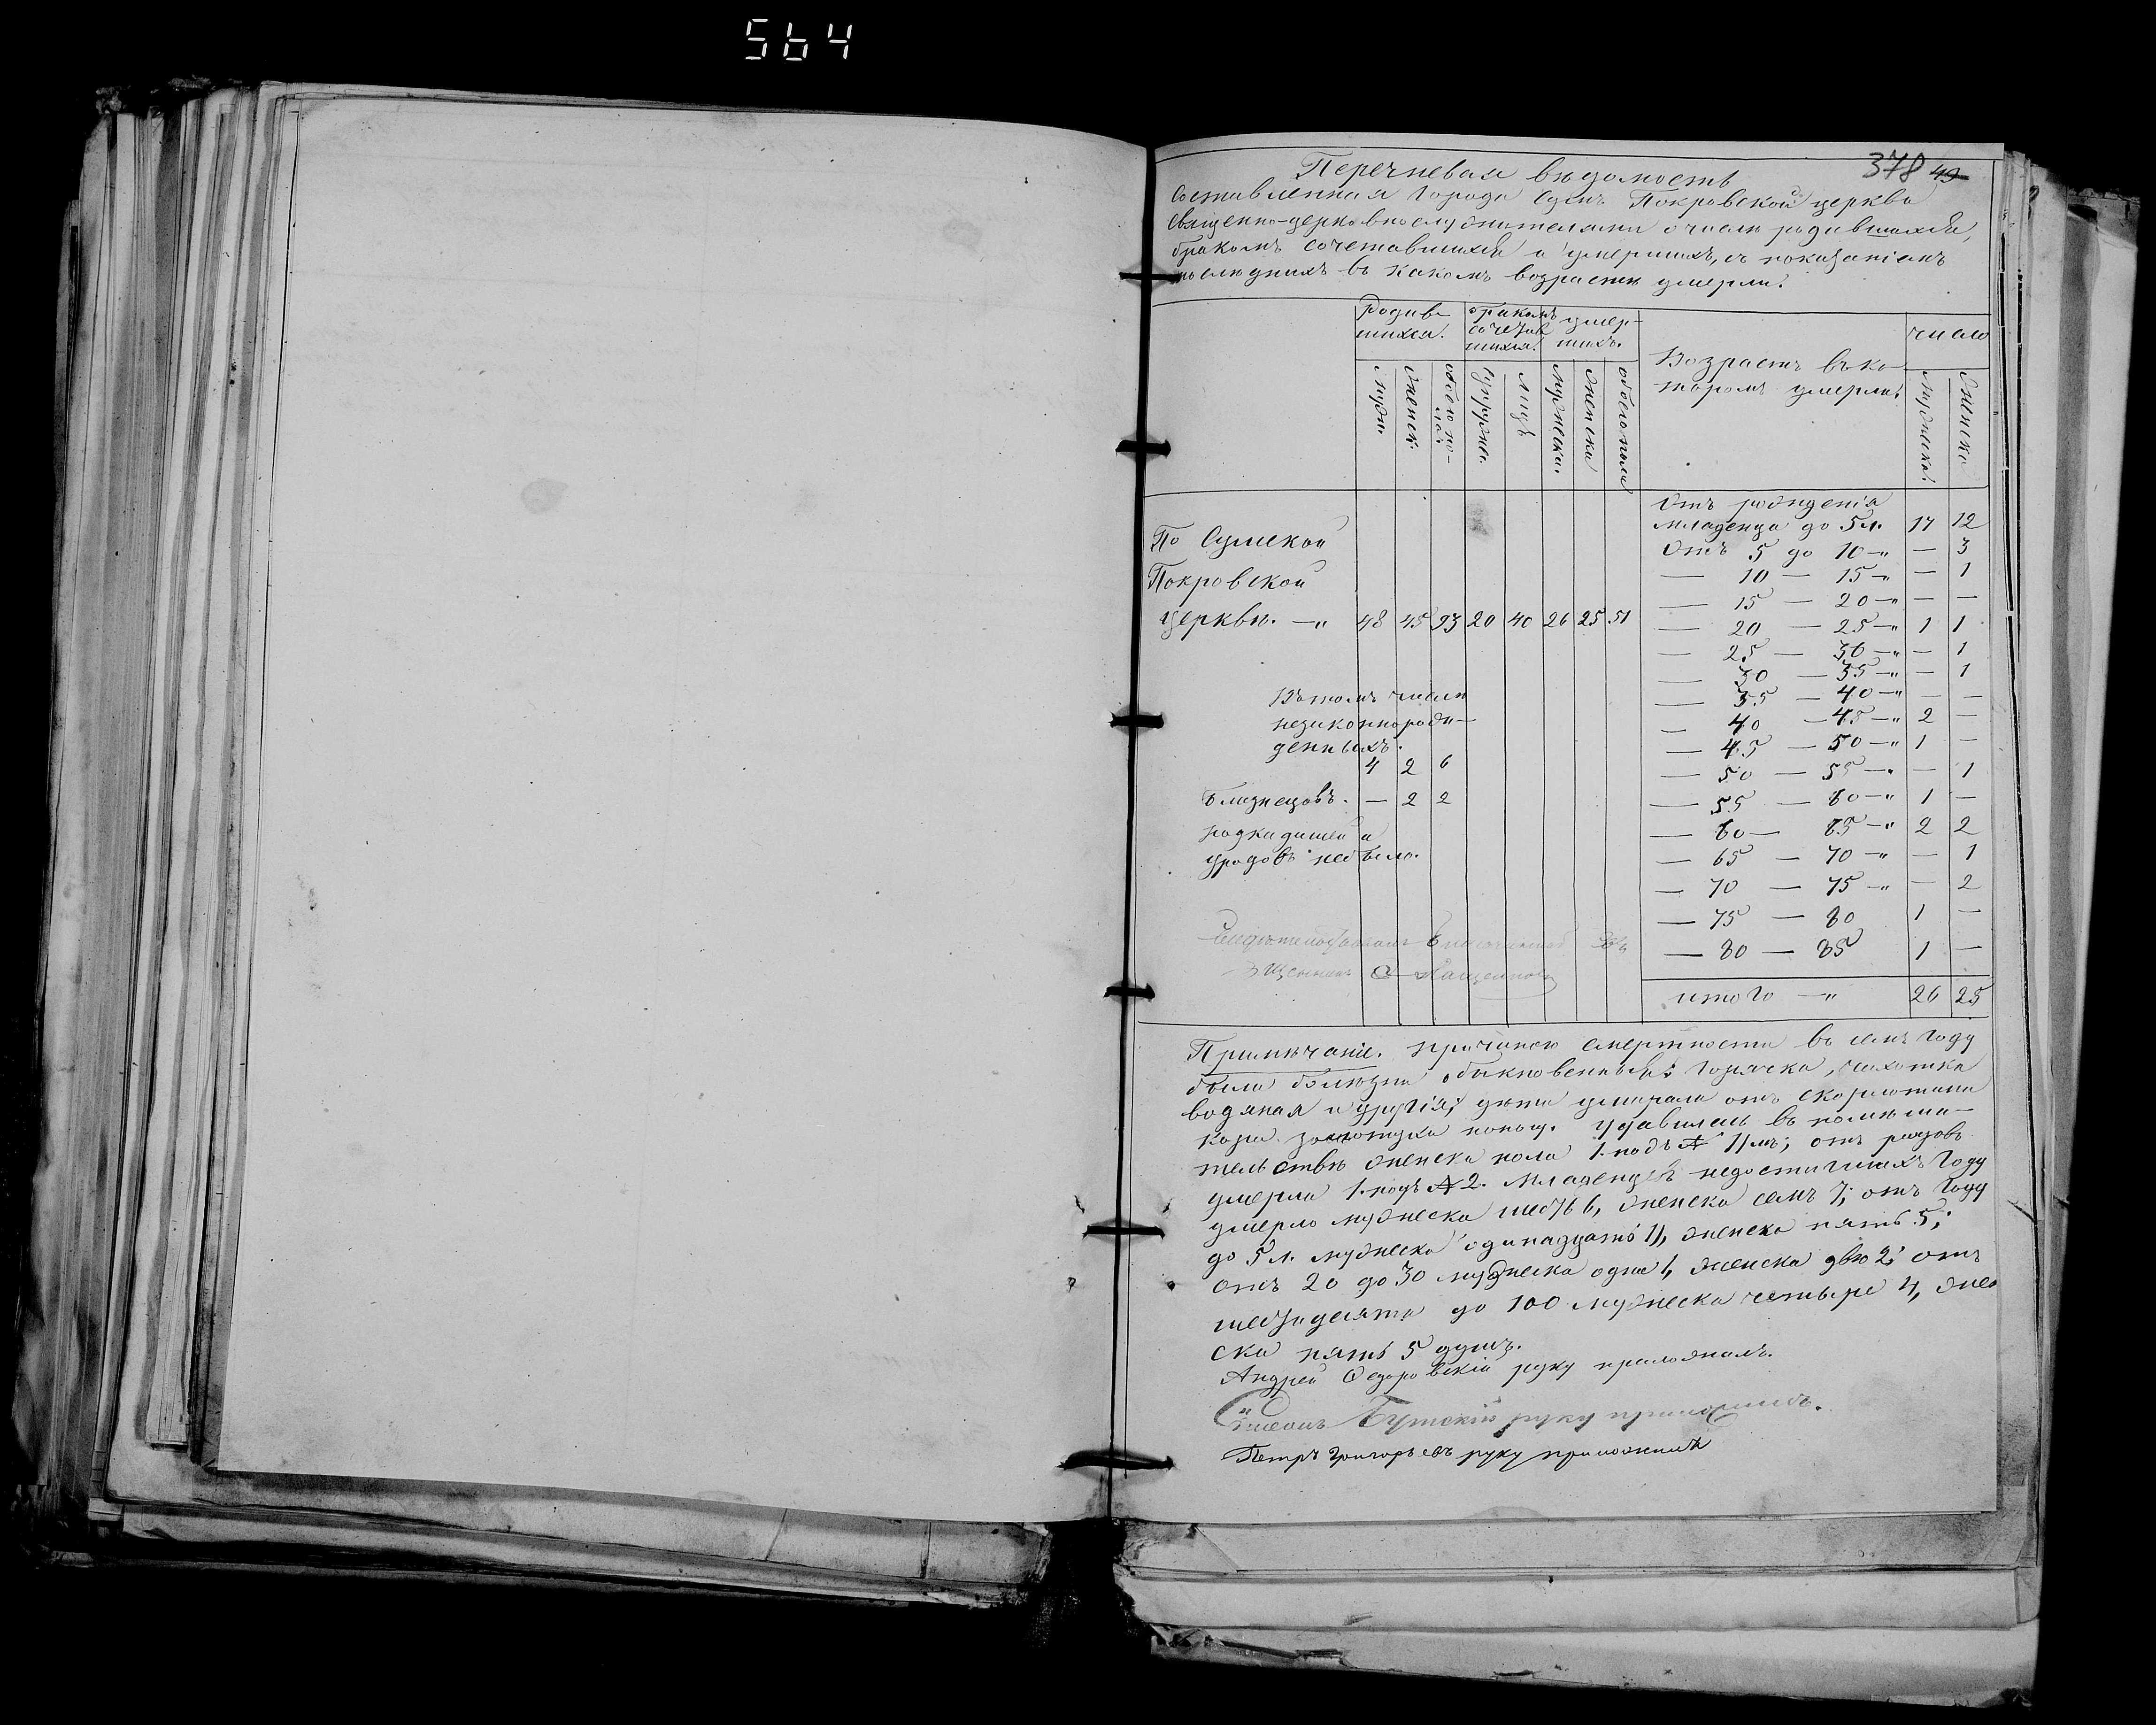 564
378 49
Перечневая вѣдомость
составленная города Сумъ Покровской церкви
священно-церковнослужителями о числѣ родившихся,
бракомъ сочетавшихся и умершихъ, съ показаніемъ
послѣднихъ въ какомъ возрастѣ умерли.
Родив- бракомъ умер-
шихся. сочетав шихъ.
шихся.
Возрастъ въ ко- число
торомъ умерли.
мужеск. женск. обоего по- ла. супруж. лицъ мужеска. женска обоего пола мужеска. женска
Отъ рожденія
младенца до 5 л. 17 12
По Сумской
Отъ 5 до 10 —„ — 3
Покровской
— 10 — 15 —„ — 1
— 15 — 20 —„ — —
церкви. —„ 48 45 93 20 40 26 25 51
— 20 — 25 —„ 1 1
— 25 — 30 —„ — 1
— 30 — 35 —„ — 1
Въ томъ числѣ
— 35 — 40 —„ — —
незаконнорож-
— 40 — 45 —„ 2 —
денныхъ.
— 45 — 50 —„ 1 —
4 2 6
— 50 — 55 —„ — 1
близнецовъ. — 2 2
— 55 — 60 —„ 1 —
подкидышей и
— 60 — 65 —„ 2 2
уродовъ небыло.
— 65 — 70 —„ — 1
— 70 — 75 —„ — 2
— 75 — 80 1 —
— 80 — 85 1 —
итого —„ 26 25
Примѣчаніе. причиною смертности въ семъ году
были болѣзни обыкновенныя: горячка, чахотка
водяная и другія; дѣти умирали отъ скарлатины
кори золотухи
тельствѣ женска пола 1. подъ № 11мъ; отъ родовъ
умерла 1. подъ № 2. Младенцевъ недостигшихъ году
умерло мужеска шесть 6, женска семь 7; отъ году
до 5 л. мужеска одинадцать 11, женска пять 5;
отъ 20 до 30 мужеска одна 1, женска двѣ 2; отъ
шестидесяти до 100 мужеска четыре 4, жен
ска пять 5 душъ.
Андрей Ѳедоровскій руку приложилъ.
руку приложилъ.
Петръ Григорьевъ руку приложилъ